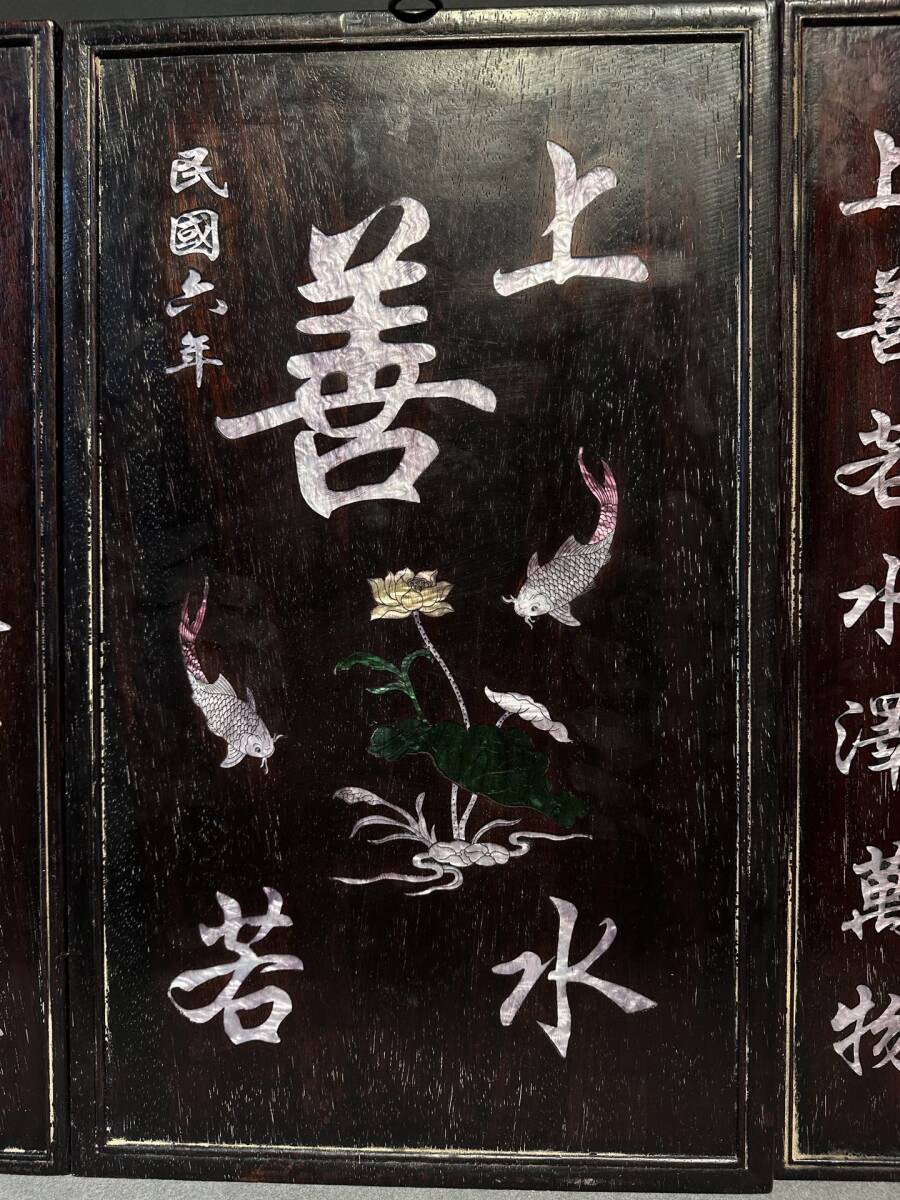 上善若水澤萬物
上善
若水
民國六年